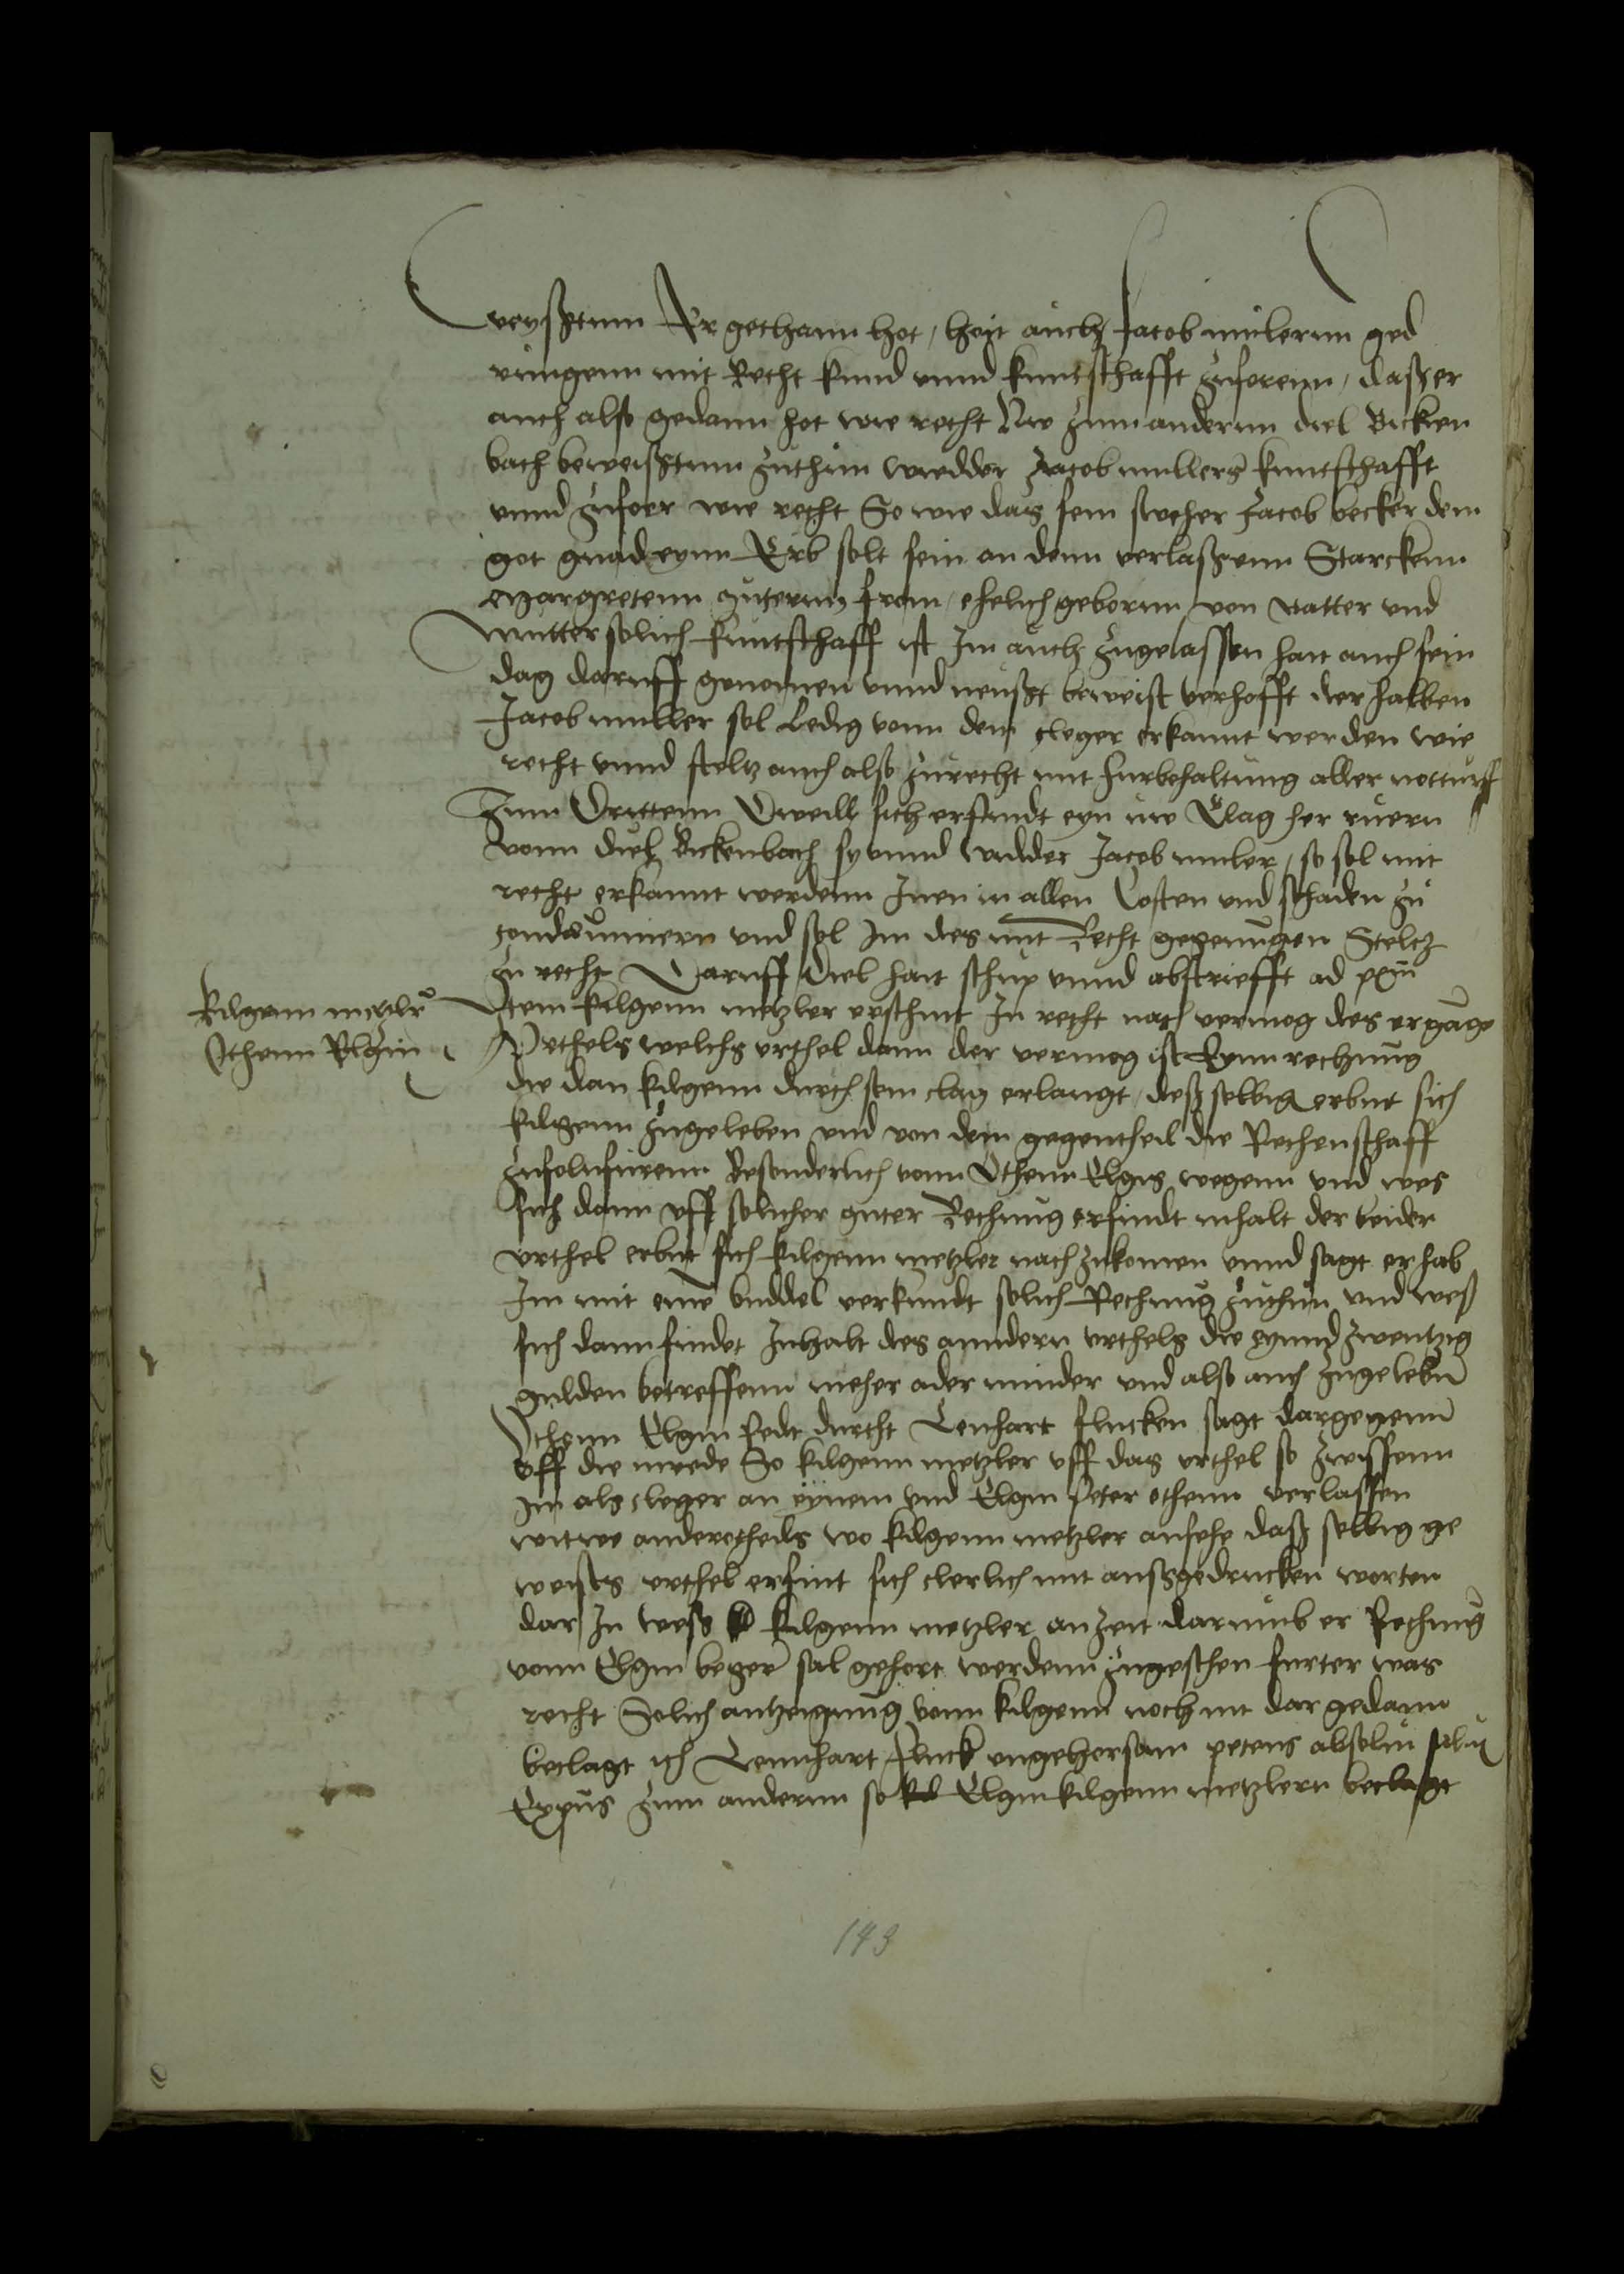 weyßtum Er gethann hot / hait auch Jacob mulernn ged
rungenn mit Recht kund unnd kuntschafft zuforenn / daß er
auch also gedann hot wie recht Nw zum andernn diel Bicken
bach beweißtum zuthun widder Jacob mullers kuntschafft
unnd zufoer wie recht So wie das sein sweher Jacob becker dem
got gnad eynn Erb solt sein an denn verlaßenn Starckenn
Margretenn guternn from / ehelich gebornn von vatter und
mutter solich kuntschaff ist Im auch zugelassen hait auch sein
dag daruff genomen unnd neußt beweist verhofft derhalben
Jacob muller sol ledig vonn dem cleger erkannt werden wie
recht unnd steltz auch also zurecht mit furbehaltung aller notturff
Zum Drittenn Dweill sich erfindt eyn nw Clag her ruern
vonn diel Bickenbach sy unnd widder Jacob muler / so sol mit
recht erkannt werdenn Inen in allen Costen und schaden zu
condeumiern und sol Im des mit Recht gegenugen Steltz
zu recht Daruff Diel hait schup unnd abstriefft ad
Kilgenn metzler
Othenn Elgin
Item kilgenn metzler erschint In recht nach vermog des ergange
Urthels welchs urthel dann der vermog ist Eynn rechnung
die dan kilgenn durch sein clag erlangt / deß selbig erbut sich
kilgenn zugeleben und von dem gegentheil die Rechenschaff
zufolnfurenn Besonderlich vonn Othenn Elgis wegenn und wes
sich dann uff solicher guter Rechnug erfindt inhalt der beider
urthel erbut sich kilgenn metzler nach zukomen unnd sagt er hab
Im mit eim buddel verkundt solich Rechnug zuthun und weß
sich dann findet Inhalt des anndern urthels die eynnd zwentzig
gulden betreffenn meher ader minder und also auch zugelebenn
Othenn Elgin Redt durch Lenhart flucken sagt dargegenn
uff die inrede So kilgenn metzler uff das urthel so zwissenn
im als cleger an eynem und Elgin Peter othenn verlassen
witwe anderetheils wo kilgenn metzler ansehe daß selbig ge
weists urthel erfint sich clerlich mit außgedrucken worten
dar In weß kilgenn metzler anzeit darumb er Rechnug
vonn Elgin beger sal gehort werdenn zugeschen furter was
recht Solich antzeignug vonn kilgenn noch nit dar gedann
beclagt ich Lennhart Fluck ungehorsam petens absolui
Expus zum andernn so Elgin kilgenn metzlern beclagt
143